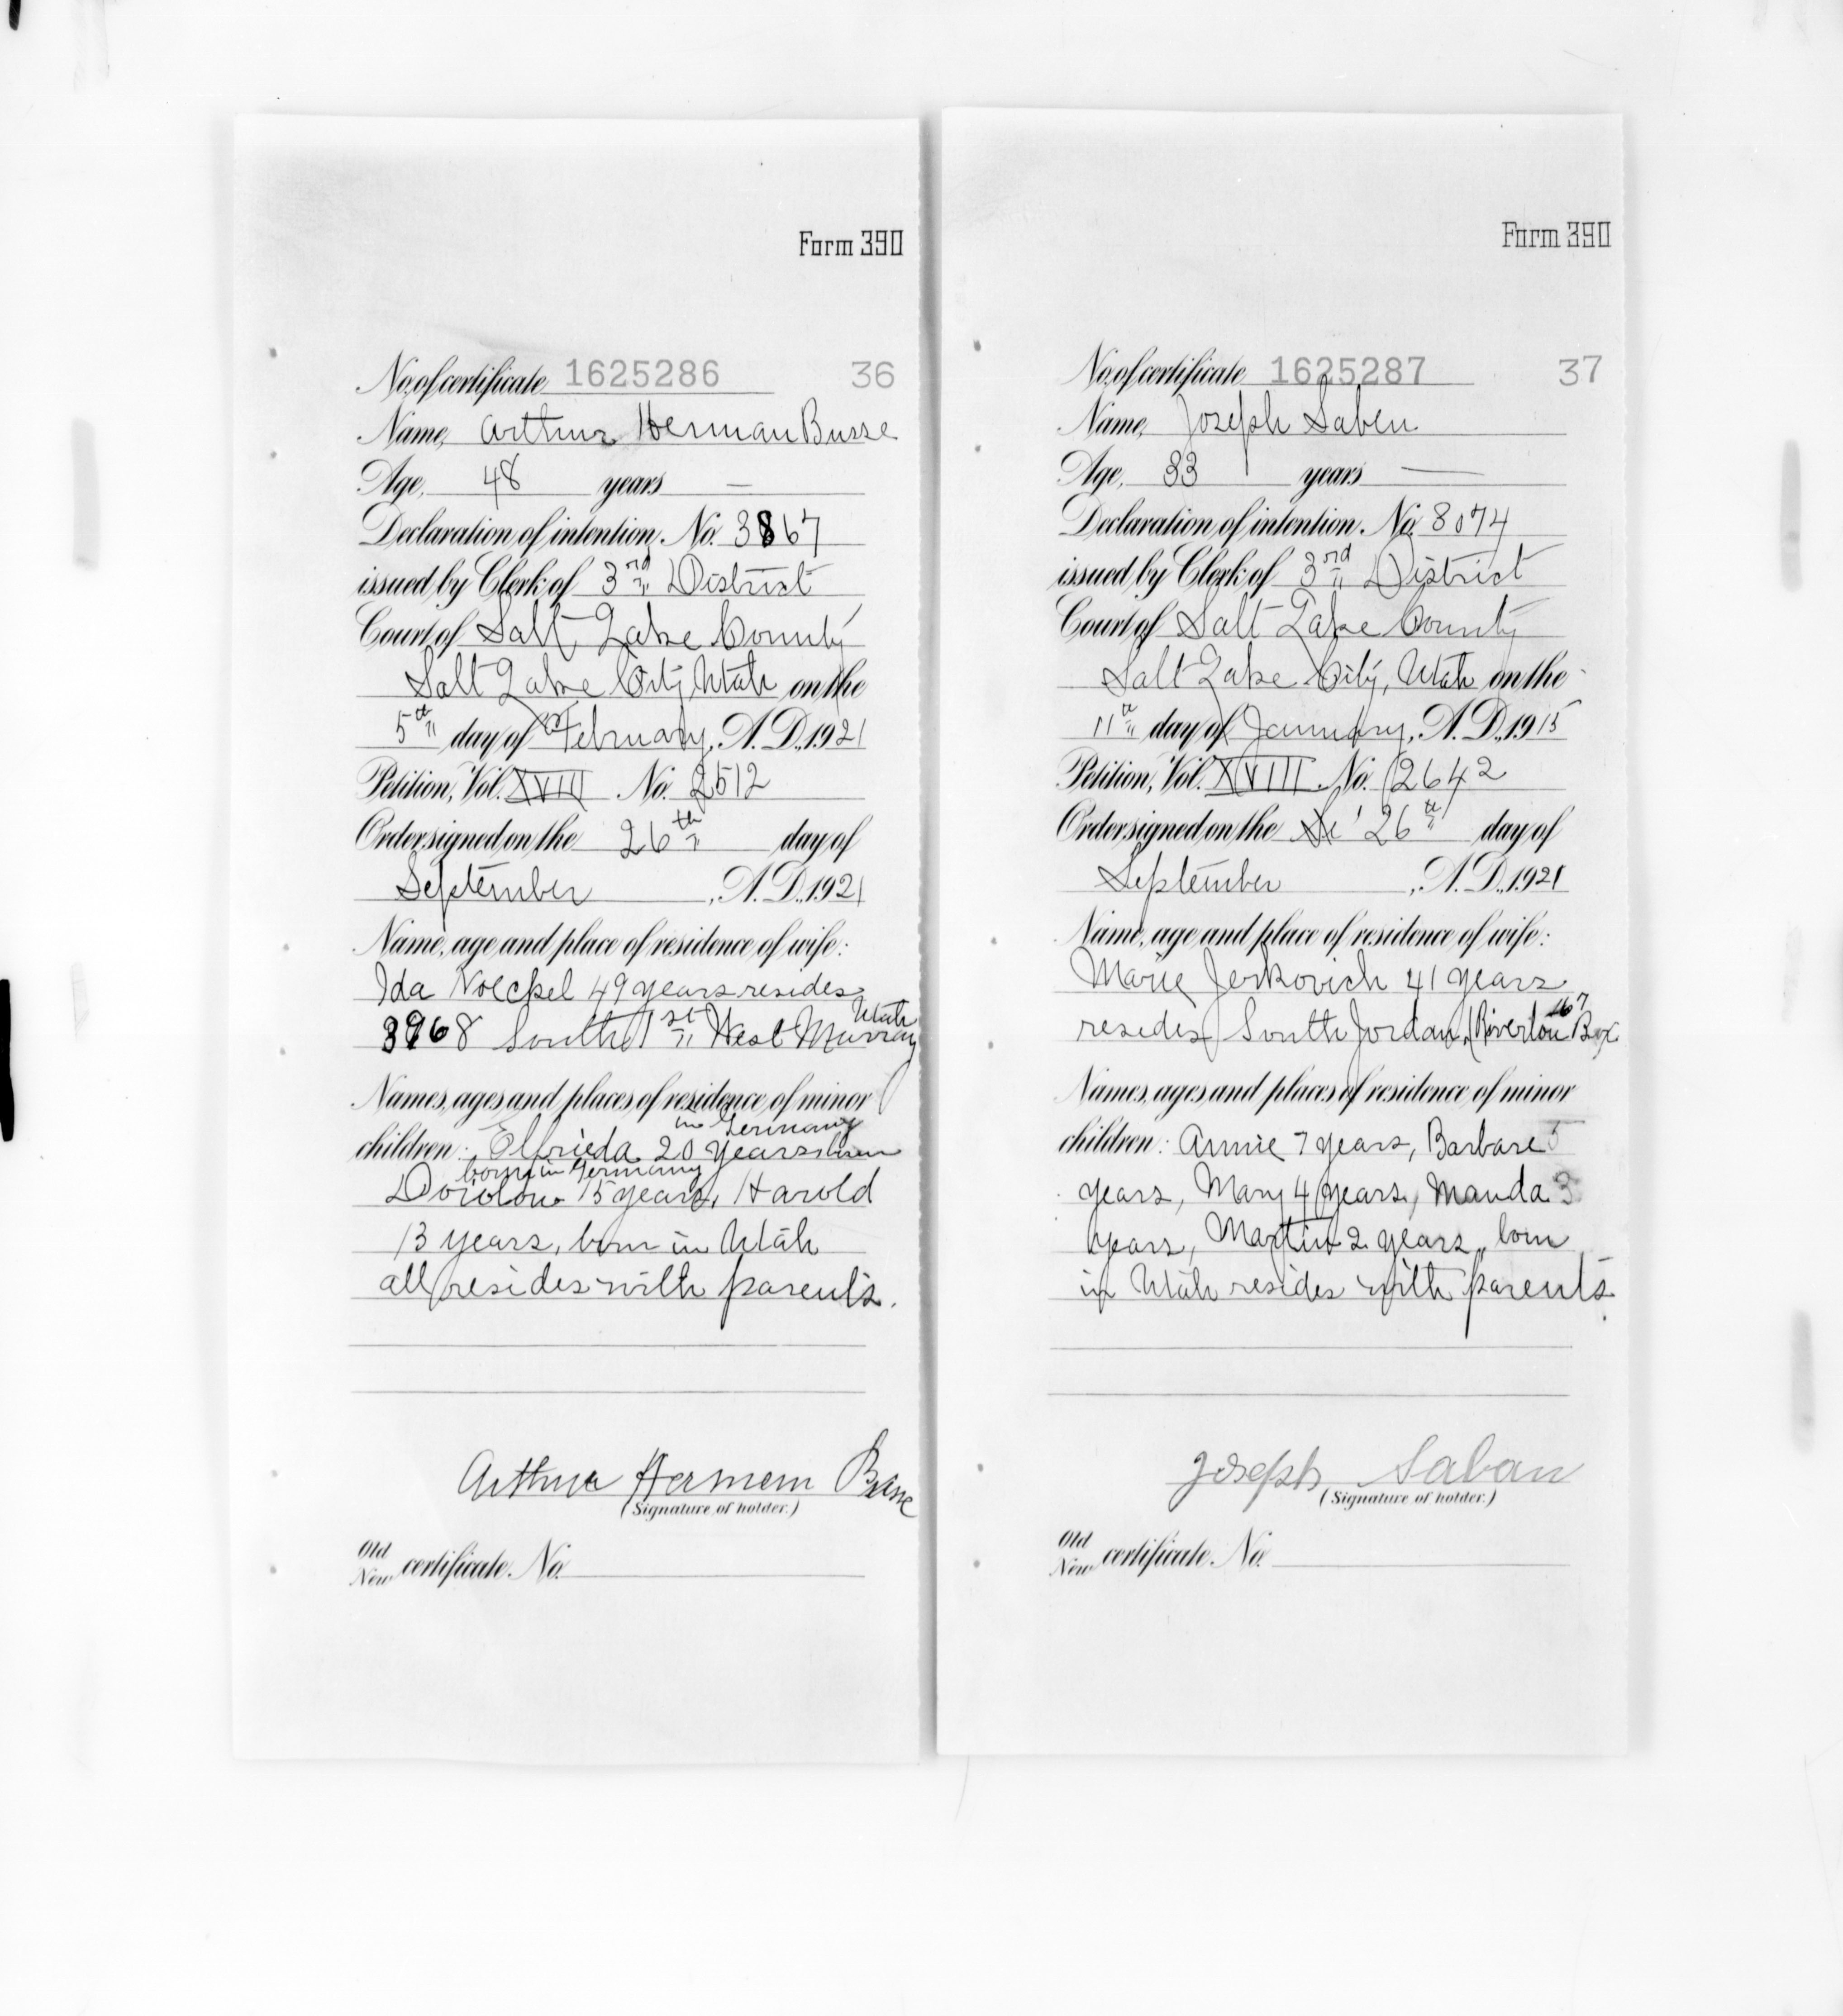 Form 390
No. of certificate 1625286 36
Name, Arthur Herman Busse
Age, 48 years —
Declaration of intention, No. 3867
issued by Clerk of 3rd District
Court of Salt Lake County
Salt Lake City, Utah on the
5th day of February, A.D., 1921
Petition, Vol. XVIII No. 2512
Order signed on the 26th day of
September, A.D., 1921
Name, age and place of residence of wife:
Ida Noeckel 49 years resides
Utah
3968 South 1st West Murray
Names, ages and places of residence of minor
in Germany
children: Elfrieda 20 years born
born in Germany
15 years, Harold
13 years, born in Utah
all resides with parents.
Arthur Hermem Busse
(Signature of holder.)
Old
New certificate No.
Form 390
No. of certificate 1625287 37
Name, Joseph Saben
Age, 33 years —
Declaration of intention, No. 8074
issued by Clerk of 3rd District
Court of Salt Lake County
Salt Lake City, Utah on the
11th day of January, A.D., 1915
Petition, Vol. XVIII No. 2642
Order signed on the 26th day of
September, A.D., 1921
Name, age and place of residence of wife:
Marie Jerkovich 41 years
167
resides South Jordan, (Riverton Box
Names, ages and places of residence of minor
children: Annie 7 years, Barbare 5
years, Mary 4 years, Manda 3
years, Martin 2 years, born
in Utah resides with parents.
Joseph Saban
(Signature of holder.)
Old
New certificate No.